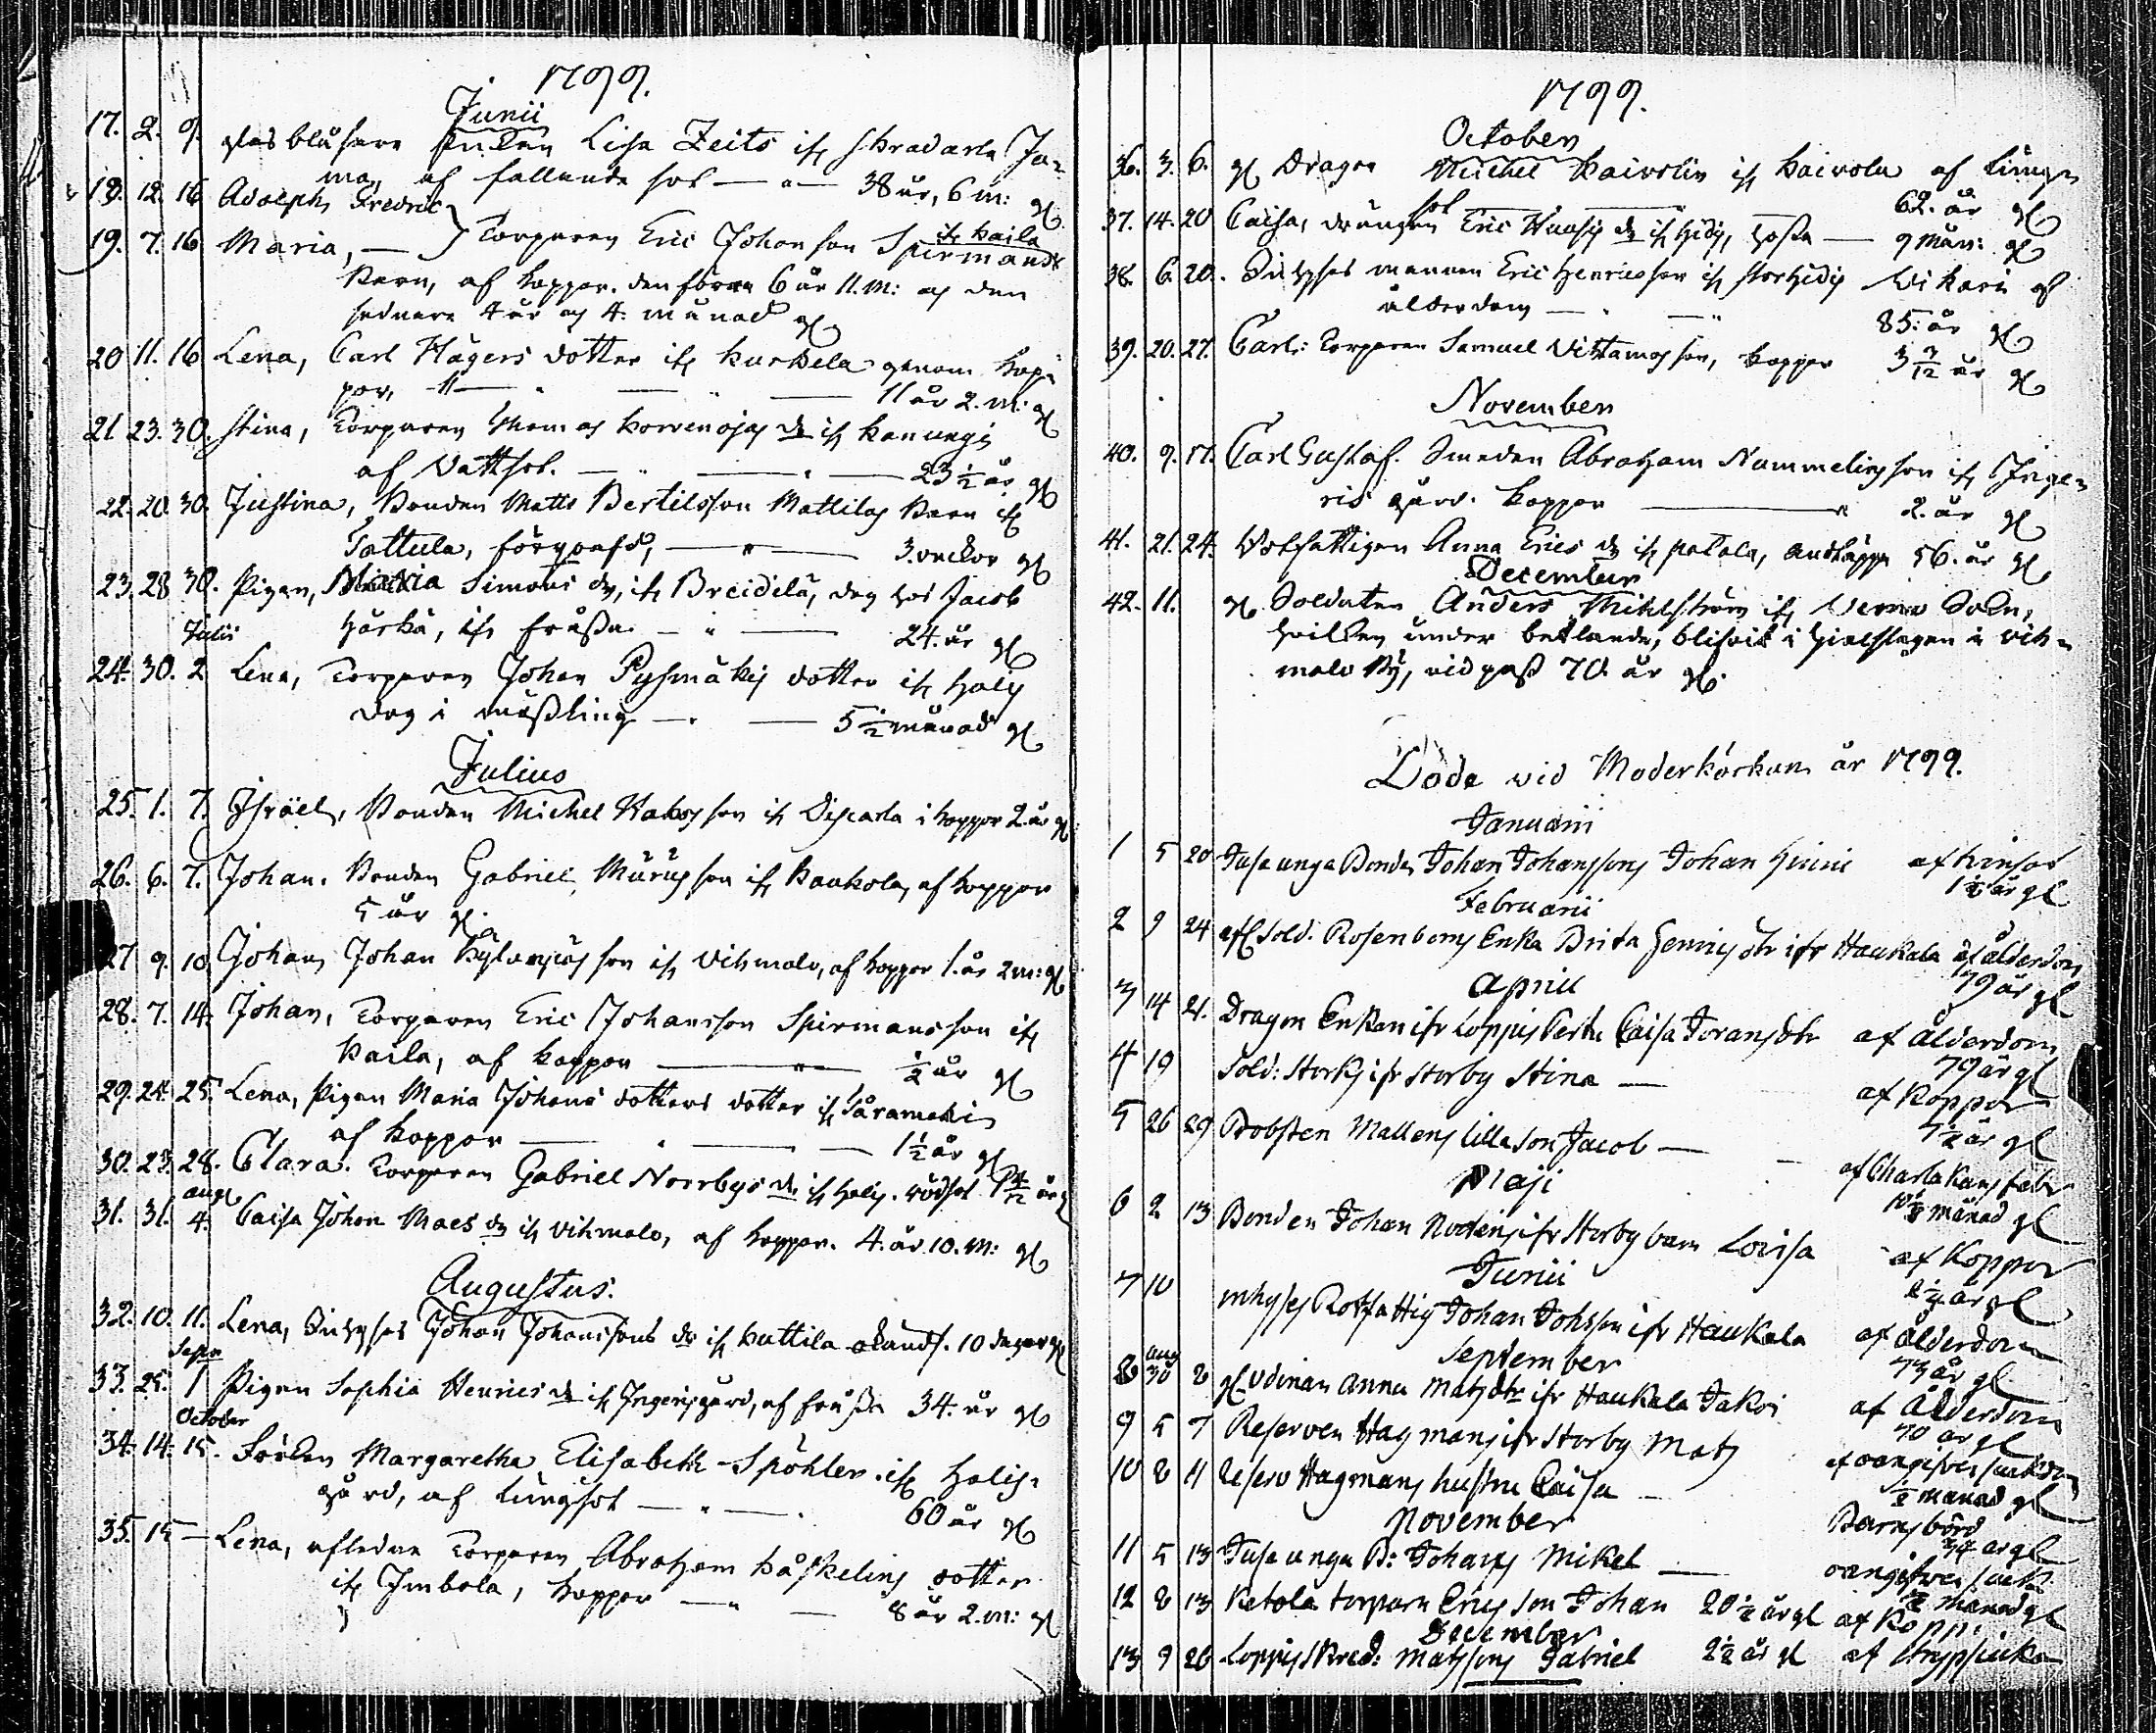 1799.
Junii
17. 2. 9. glasblåsare Enkan Lisa Zeits ifr Skradarla Ja=
ma, af fallande sot — " — 38 år, 6 m: gl
18. 12. 16 Adolph Fredric
ifr Kaila
19. 7. 16 Maria, — Torparen Eric Johansson Spirmans
barn, af koppor. den förra 6 år 11. m: och den
sednare 4 år och 4. månad gl
20 11. 16 Lena, Carl Hägers dotter ifr Kurkela genom kop=
por, 11 år 2. m: gl
21 23. 30. Stina, Torparen Thomas Korvenojas dr ifr
af Vattsot. — " — " — 23 1/2 år gl
22. 20. 30. Justina, Bonden Matts Bertilsson Mattilas barn ifr
Tattula, förqvafd, — " — 3. veckor gl
23. 28 30. Pigan, Maria Simons dr, ifr Breidilä, dog hos Jacob
Julii Härkä, ifr frossa — " — 24. år gl
24. 30. 2 Lena, Torparen Johan Pysmäkis dotter ifr Halis
dog i mässling — 5 1/2 månad gl
Julius
25. 1. 7. Israel, Bonden Michel Habos son ifr i koppor 2. år gl
26. 6. 7. Johan. Bonden Gabriel son ifr Kaukola, af koppor
5 år gl.
27 9. 10 Johan, Johan son ifr Vihmalo, af koppor 1. år 2 m: gl
28. 7. 14. Johan, Torparen Eric Johansson Spirmans son ifr
Kaila, af koppor — " — 1/2 år gl
29. 24. 25. Lena, Pigan Maria Johans dotters dotter ifr Såramäki
af koppor — 1 1/2 år gl
30. 23. 28. Clara. Torparen Gabriel Norrbys dr ifr Halis. rödsot
aug
31. 31. 4. Caisa Johan Maes dr ifr Vihmalo, af koppor. 4. år. 10. m: gl
Augustus.
32. 10. 11. Lena, Inhyses Johan Johanssons dr ifr Kuttila okänds. 10 dagar gl
Sept
33. 25. 1 Pigan Sophia Henrics dr ifr Ingerisgård, af frossa 34. år gl
October
34. 14. 15. Fröken Margaretha Elisabeth Spöhler ifr Halis=
gård, af lungsot — " — 60 år gl
35. 15 — Lena, afledne Torparen Abraham dotter
ifr Imbola, koppor — " — 8 år 2. m: gl
1799.
October
36. 3. 6. gl Dragon Michel Kaivolin ifr Kaivola af lung=
sot 62. år gl
37. 14. 20 Caisa, drängen Eric dr ifr — 9 mån: gl
38. 6. 20. Inhyses mannen Eric Henricsson ifr af
ålderdom — 85. år gl
39. 20. 27. Carl: Torparen Samuel son, koppor 3 7/12 år gl
November
40. 9. 17. Carl Gustaf. Smeden Abraham Nummelins son ifr Inge=
ris gård. koppor — " 2. år gl
41. 21. 24. Rotfattigen Anna Erics dr ifr Patola, andtäppa 56. år gl
December
42. 11. gl Soldaten Anders ifr Vemo Sokn,
hvilken under betlande, blifvit i hjälslagen i Vih=
malo by, vid pass 70. år gl.
Döde vid Moderkörkan år 1799.
Januarii
1 5 20 Juse unga Bondes Johan Johanssons Johan af
1 1/2 år gl
Februarii
2 9 24 afl Sold. Rosenboms Enka Brita Henrics dtr ifr Haukala af ålderdom
79 år gl
April
3 14 21. Dragon Enkan ifr Loppis Pertu Caisa Jöransdtr af ålderdom
79 år gl
4 19 Sold: Storks ifr Storby Stina — af koppor
1/2 år gl
5 26 29 Probsten Mallens lilla son Jacob — — af Charlakans feber
10 1/2 månad gl
Maji
6 2 13 Bonden Johan Nodens ifr Storby barn Lovisa af koppor
år gl
Junii
7 10 inhyses Rotfattig Johan Johsson ifr Haukala af ålderdom
73 år gl
September
aug
8 30 8 gl Anna Mats dtr ifr Haukala Jakoi af ålderdom
70 år gl
9 5 7 Reserven Hagmans ifr Storby Mats
1/2 månad gl
10 8 11 Reserv Hagmans hustru Caisa — Barnsbörd
34 år gl
November
11 5 13 Juse unga B: Johans Mikel —
1/2 månad gl
12 8 13 Ketola torparn Erics son Johan 20 1/2 år gl af kopp.
December
13 9 26 Loppis Skred: Matssons Gabriel 2 1/2 år gl af strypsiuka